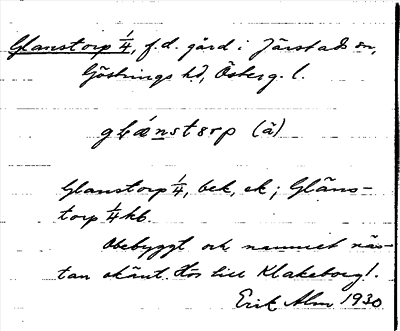 Glanstorp 1/4, f.d. gård i Järstads sn,
Göstrings hd, Österg. l.
glánstorp (ä)
Glanstorp 1/4, bek, ek; Gläns-
torp 1/4 kb.
Obebyggt och namnet näs-
tan okänt. Hör till Klakeborg 1.
Erik Alm 1930